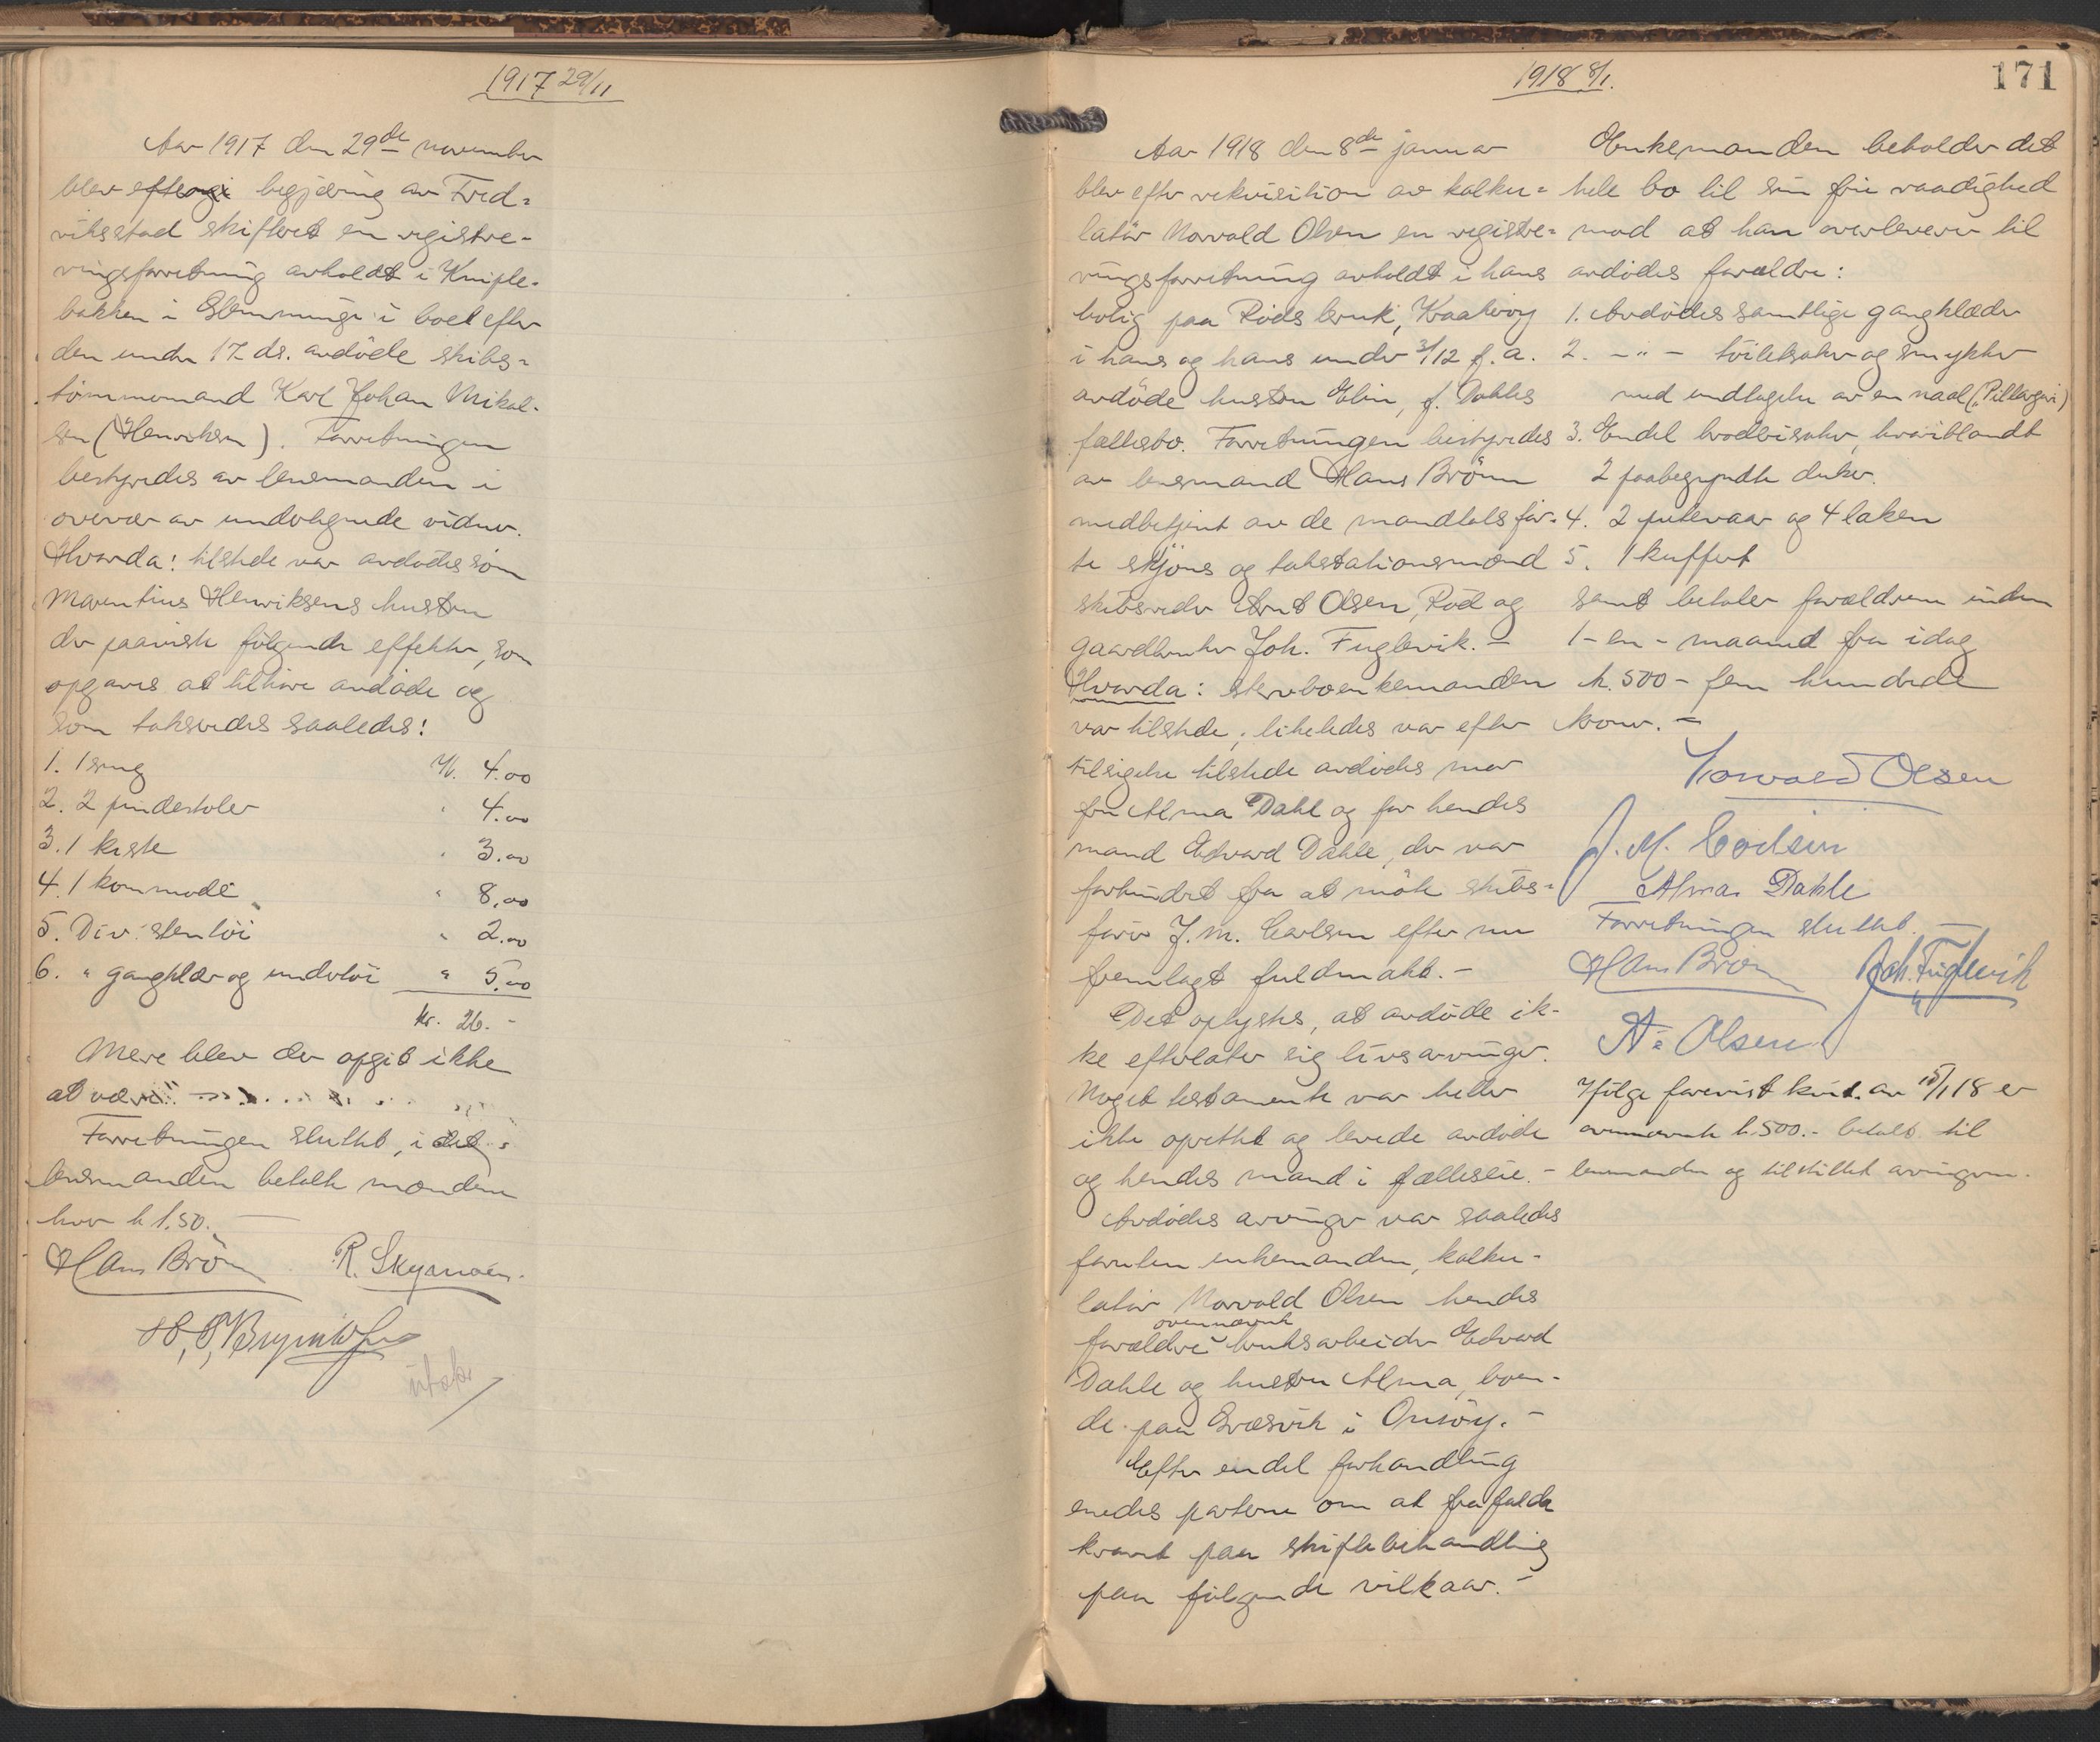 1917 29/11
Aar 1917 den 29de november
blev efter begjæring av Fred=
riksstad skifteret en registre-
ringsforretning avholdt i Kniple-
bakken i Glemminge i boet efter
den under 17 ds. avdöde skibs=
tömmermand Karl Johan Mikal-
sen (Henriksen). Forretningen
bestyredes av lensmanden i
overvær av undertegnede vidner.
Hvorda: tilstede var avdödes sön
Marentius Henriksens hustru
der paaviste fölgende effekter, som
opgaves at tilhöre avdöde og
som taksredes saaledes:
1. 1 seng Kr. 4.00
2. 2 pindestoler " 4.00
3. 1 kiste " 3.00
4. 1 kommode " 8.00
5. Div. stentöi " 2.00
6. " gangklær og undertöi " 5.00
kr. 26.-
Mere blev der opgit ikke
at være
Forretningen sluttet, idet
lensmanden betalte mændene
hver k 1.50. —
Hans Bröm R. Skyanoen.
ut skr
171
1918 8/1.
Aar 1918 den 8de januar
blev efter rekvisition av kalku=
latör Norvald Olsen en registre=
ringsforretning avholdt i hans
bolig paa Röds bruk, Kraakeröy
i hans og hans under 3/12 f.a.
avdöde hustru Elin, f. Dahles
fællesbo. Forretningen bestyredes
av lensmand Hans Bröm
medbetjent av de mandtalsför-
te skjöns og takstationsmænd
skibsreder Arnt Olsen, Röd og
gaardbruker Joh. Fuglevik. -
Hvorda: stervboenkemanden
var tilstede; likeledes var efter
tilsigelse tilstede avdödes mor
fru Alma Dahl og for hendes
mand Edvard Dahle, der var
forhindret fra at möte skibs-
förer J. M. Carlsen efter nu
fremlagt fuldmakt. -
Det oplystes, at avdöde ik-
ke efterlater sig livsarvinger.
Noget testamente var heller
ikke oprettet og levede avdöde
og hendes mand i fælleseie. -
Avdödes arvinger var saaledes
foruten enkemanden, kalku-
latör Norvald Olsen hendes
ovennævnte
forældre bruksarbeider Edvard
Dahle og hustru Alma, boen-
de paa Græsvik i Onsöy. -
Efter endel forhandling
enedes parterne om at frafalde
kravet paa skiftebehandling
paa fölgende vilkaar. -
Enkemanden beholder det
hele bo til sin frie raadighed
mod at han overleverer til
avdödes forældre:
1. Avdödes samtlige gangklæder
2. - " - toiletsaker og smykker
med undtagelse av en naal
3. Endel broderisaker, hvoriblandt
2 paabegyndte duker.
4. 2 putevaar og 4 laken
5. 1 kuffert
samt betaler forældrene inden
1 - en - maaned fra idag
k. 500 - fem hundrede
kroner. -
Norvald Olsen
J. M. Carlsen
Alma Dahle
Forretningen sluttet. —
Hans Bröm Joh. Fuglevik
A. Olsen
Ifölge forevist kvit. av 15/1 18 er
ovennævnte k. 500.- betalt til
lensmanden og tilstillet arvingerne.